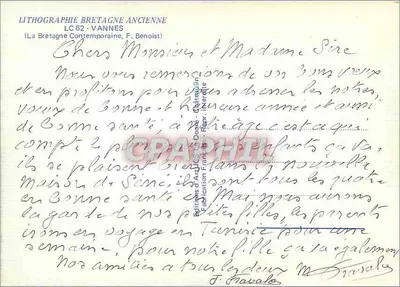 LITHOGRAPHIE BRETAGNE ANCIENNE
LC 62 - VANNES
(La Bretagne Contemporaine, F. Benoist)
Chers Monsieur et Madame Sire
Nous vous remercions de vos bons vœux
et en profitons pour vous adresser les notres,
voeux de bonne et heureuse année et aussi
de bonne santé, à notre âge c'est ce qui
compte le plus. enfants ça va,
ils se plaisent bien dans nouvelle
maison de Séné, ils sont tous les quatre
en bonne santé. Mai nous aurons
la garde de nos petites filles, les parents
irons en voyage en Tunisie pour une
semaine, pour notre fille ça va également
Nos amitiés a tous les deux